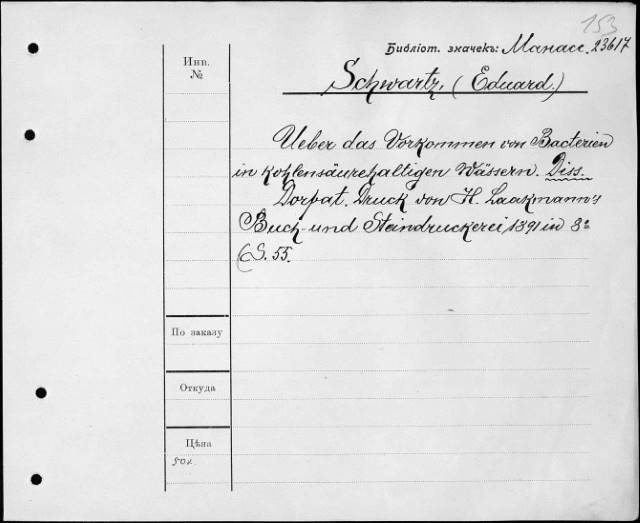 153
Библіот. значекъ: Манасс. 23617
Инв.
№
Schwartz, (Eduard.)
Ueber das Vorkommen von Bacterien
in kohlensäurehaltigen Wässern. Diss.
Dorpat. Druck von H. Laakmann's
Buch- und Steindruckerei, 1891 in 8º
(S. 55.
По заказу
Откуда
Цѣна
50к.